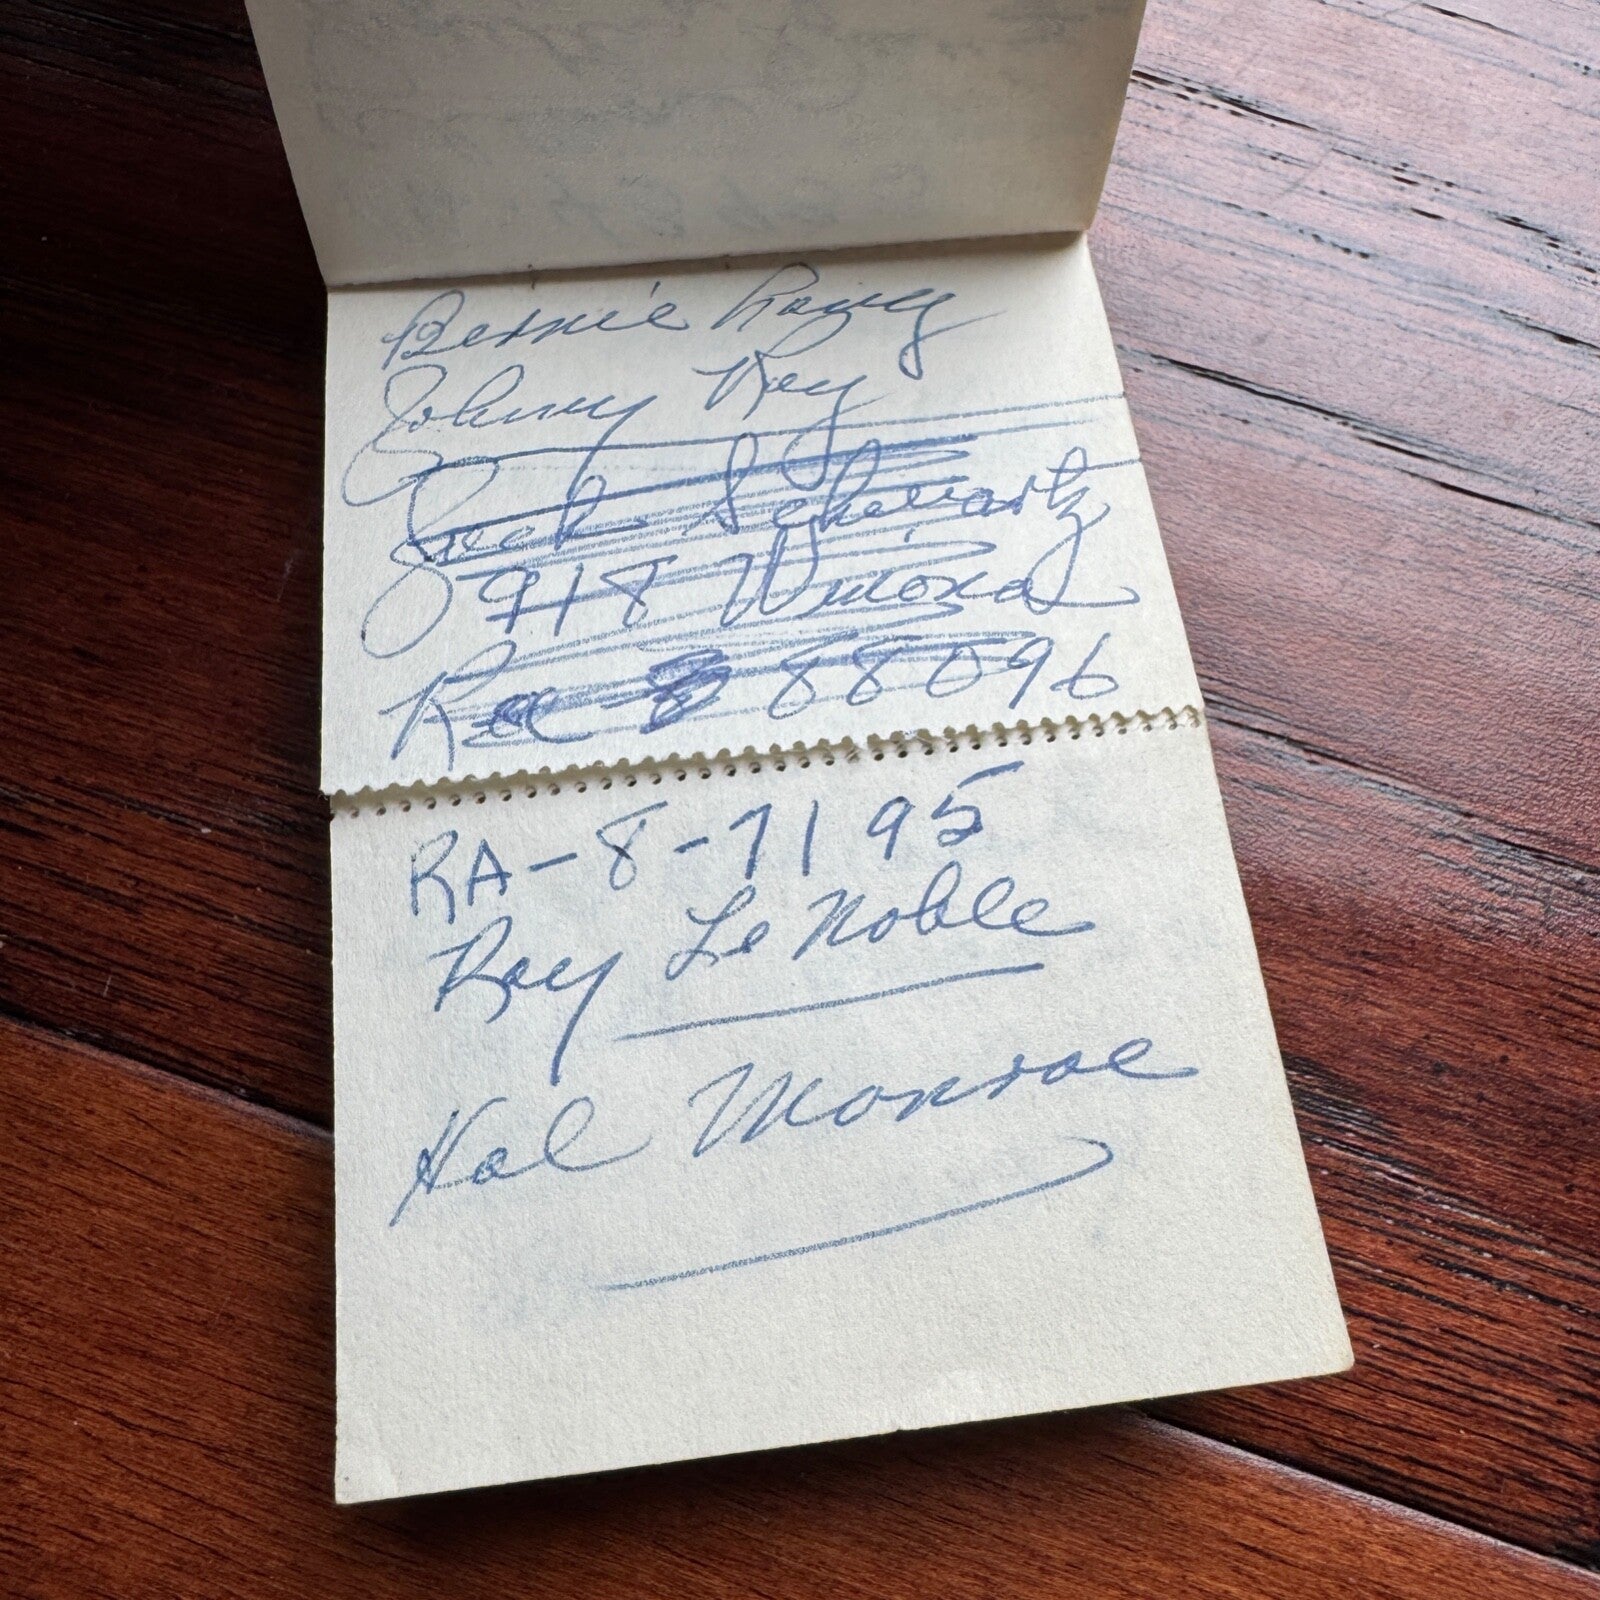 Bernie Lowy
Johnny Ray
Jack Schwartz
918 Winona
Ra 88096
RA-8-7195
Roy Le Noble
Hal Monroe